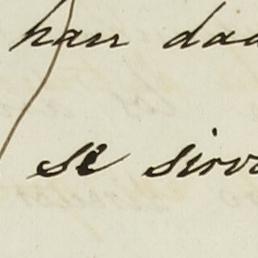 han dad
se sirva